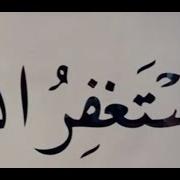 ستَغفِرُ ال